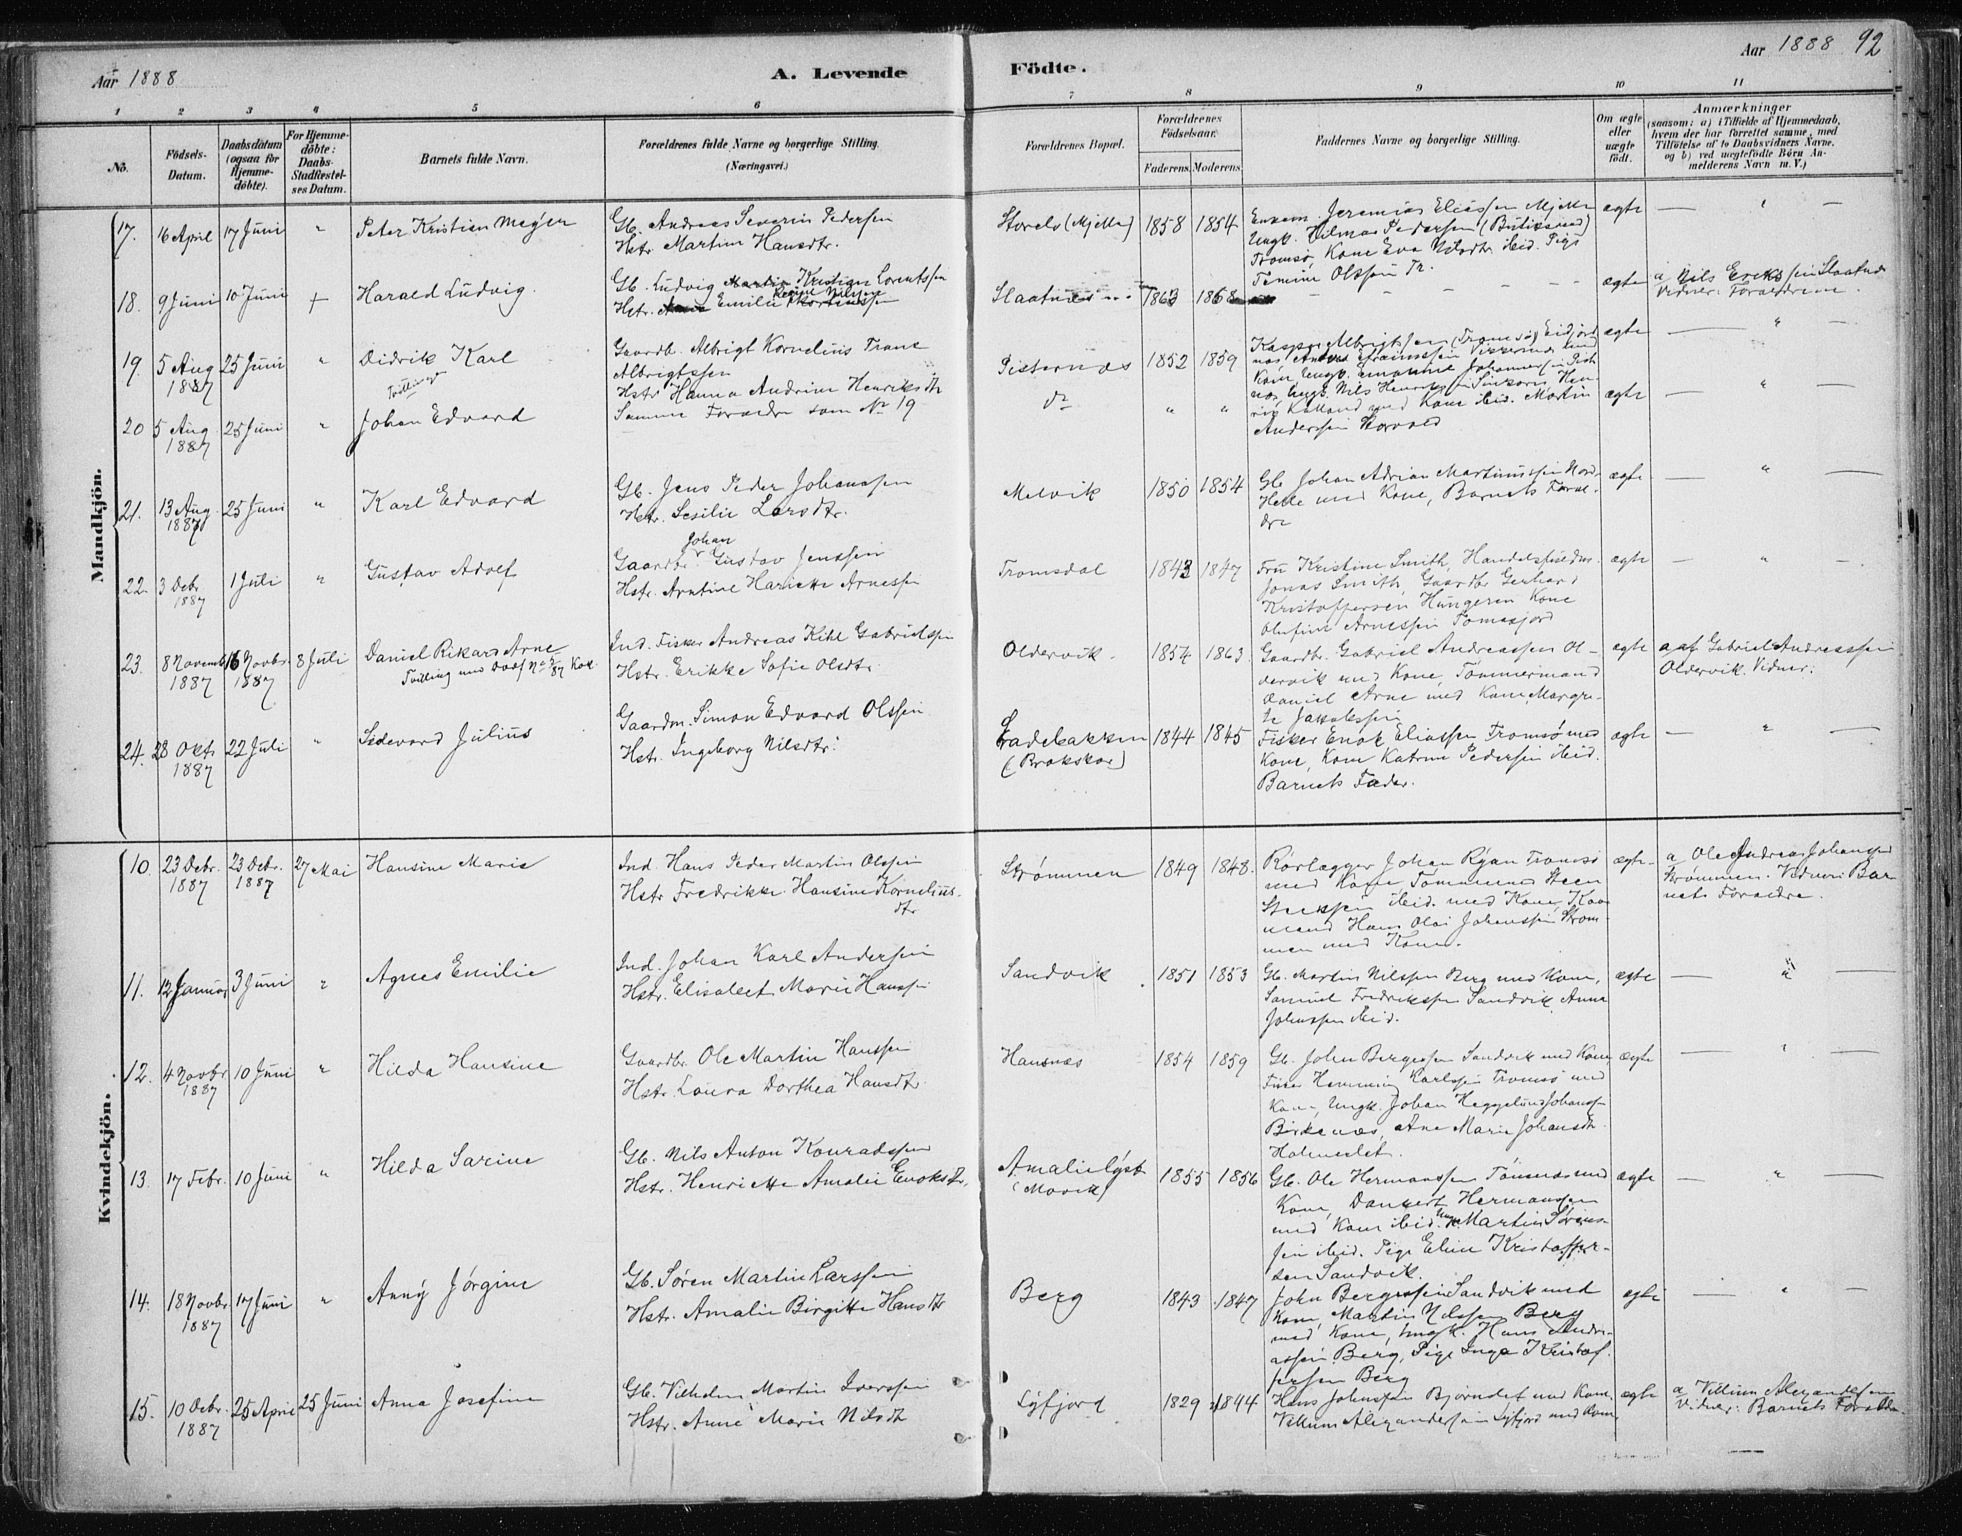 Aar 1888
A. Levende
Födte.
Aar 1888 92
1 2 3 4 5 6 7 8 9 10 11
No.
Födsels-Datum.
Daabsdatum (ogsaa for Hjemme-döbte).
For Hjemme-döbte: Daabs-Stadfæstel-ses Datum.
Barnets fulde Navn.
Forældrenes fulde Navne og borgerlige Stilling. (Næringsvei.)
Forældrenes Bopæl.
Forældrenes Födselsaar.
Faderens. Moderens.
Faddernes Navne og borgerlige Stilling.
Om ægte eller uægte födt.
Anmærkninger
(saasom: a) i Tilfælde af Hjemmedaab, hvem der har forrettet samme, med Tilføielse af to Daabsvidners Navne, og b) ved uægtefödte Börn Anmelderens Navn m. V.)
Mandkjön.
17. 16 April 17 Juni " Peter Kristian Meyer
Gb. Andreas Severin Pedersen
Hstr. Martine Hansdtr.
Storelv (Mjelle) 1858 1854
Enkem. Jeremias Eliassen Mjelle
Ungk. Hilmar Pedersen
Tromsø, Kone Eva Nilsdtr. ibid. Pige
Tomine Olssen Tr.
ægte — " —
18. 9 Juni 10 Juni + Harald Ludvig.
Gb. Ludvig Kristian Lorentssen
Hstr. Emilie
Slaatnes 1863 1868
ægte a Nils Erikssen Slaatnes
Vidner: Forældrene.
19. 5 Aug 1887 25 Juni " Didrik Karl
Tvillinger
Gaardb. Albrigt Kornelius Trane
Albrigtssen
Hstr Hanna Andrine Henriksdtr
Pisternæs 1852 1859
Kasper Albrigtssen (Tromsø)
ægte — " —
20 5 Aug 1887 25 Juni " Johan Edvard
Samme Forældre som No 19
do " "
Kone ibid. Martin
Anderssen
ægte — " —
21. 13 Aug 1887 25 Juni " Karl Edvard
Gb. Jens Peder Johanssen
Hstr. Sesilie Larsdtr.
Melvik 1850 1854
Gb Johan Adrian Martinussen Nord-
Helle med Kone, Barnets Foræl-
dre
ægte — " —
22. 3 Debr 1887 1 Juli " Gustav Adolf
Johan
Gaardbr. Gustav Jenssen
Hstr. Arntine Hariette Arnessen
Tromsdal 1843 1847
Fru Kristine Smith, Handelsfuldm.
Jonas Smith, Gaardbr Gerhard
Kristoffersen Hungeren Kone
Olufine Arnessen Tomasjord
ægte — " —
23. 8 Novemb 1887 16 Novbr. 1887 8 Juli Daniel Rikard Arne
Tvilling med
Ind. Fisker Andreas Kihl Gabrielssen
Hstr. Erikke Sofie Olsdtr.
Oldervik. 1854 1863.
Gaardbr. Gabriel Andreassen Ol-
dervik med Kone, Tømmermand
Daniel Arne med Kone, Margre-
te Jakobssen
ægte a af Gabriel Andreassen
Oldervik. Vidner:
24. 28 Oktr 1887 22 Juli " Sedevard Julius
Gaardm. Simon Edvard Olssen
Hstr. Ingeborg Nilsdtr.
Ladebakken
(Brokskar) 1844 1845
Fisker Enok Eliassen Tromsø med
Kone, Kone Katrine Pedersen ibid.
Barnets Fader.
ægte — " —
Kvindekjön.
10. 23 Debr. 1887 23 Debr. 1887 27 Mai Hansine Marie
Ind. Hans Peder Martin Olssen
Hstr Fredrikke Hansine Kornelius-
dtr
Strømmen 1849 1848.
Rørlægger Johan Ryan Tromsø
med Kone Tømmermand Steen
ibid. med Kone,
mand Hans Olai Johanssen Strøm-
men med Kone.
ægte. a Ole Andreas Johansen
Strømmen. Vidner: Bar-
nets Forældre.
11. 12 Januar 3 Juni " Agnes Emilie
Ind. Johan Karl Andersen
Hstr. Elisabet Marie Hanssen
Sandvik 1851 1853
Gb. Martin Nilssen Berg med Kone,
Samuel Fredrikssen Sandvik, Anna
Johanssen ibid.
ægte — " —
12. 4 Novbr 1887 10 Juni " Hilda Hansine
Gaardbr. Ole Martin Hanssen
Hstr. Laura Dorthea Hansdtr.
Hansnæs 1854 1859
Gb. John Bergessen Sandvik med Kone
Hemming Karlssen Tromsø med
Kone, Ungk. Johan Heggelund Johanss-
Birkenæs, Ane Marie Johansdtr.
Holmeslet.
ægte — " —
13. 17 Febr. 10 Juni " Hilda Sarine
Gb. Nils Anton Konradssen
Hstr. Henriette Amalie Enoksdtr.
Amalielyst
(Movik) 1855 1856
Gb. Ole Hermanssen Tønsnes med
Kone, Dankert Hermanssen
med Kone ibid. Ungk. Martin Søren-
sen ibid. Pige Eline Kristoffer-
sen Sandvik.
ægte — " —
14. 18 Novbr 1887 17 Juni " Anny Jørgine
Gb. Søren Martin Larssen
Hstr. Amalie Birgitte Hansdtr
Berg 1843 1847
John Bergessen Sandvik med
Kone, Martin Nilssen Berg
med Kone, Ungk. Hans Andre-
assen Berg, Pige Inga Kristof-
fersen Berg
ægte — " —
15. 10 Debr. 1887 25 April 25 Juni Anna Josefine
Gb. Vilhelm Martin Iverssen
Hstr. Anne Marie Nilsdtr
Lyfjord 1829 1844
Hans Johnssen Bjørndet med Kone,
Villum Alexandersen Lyfjord med Kone
ægte a Villum Alexandersen
Vidner: Barnets Forældre